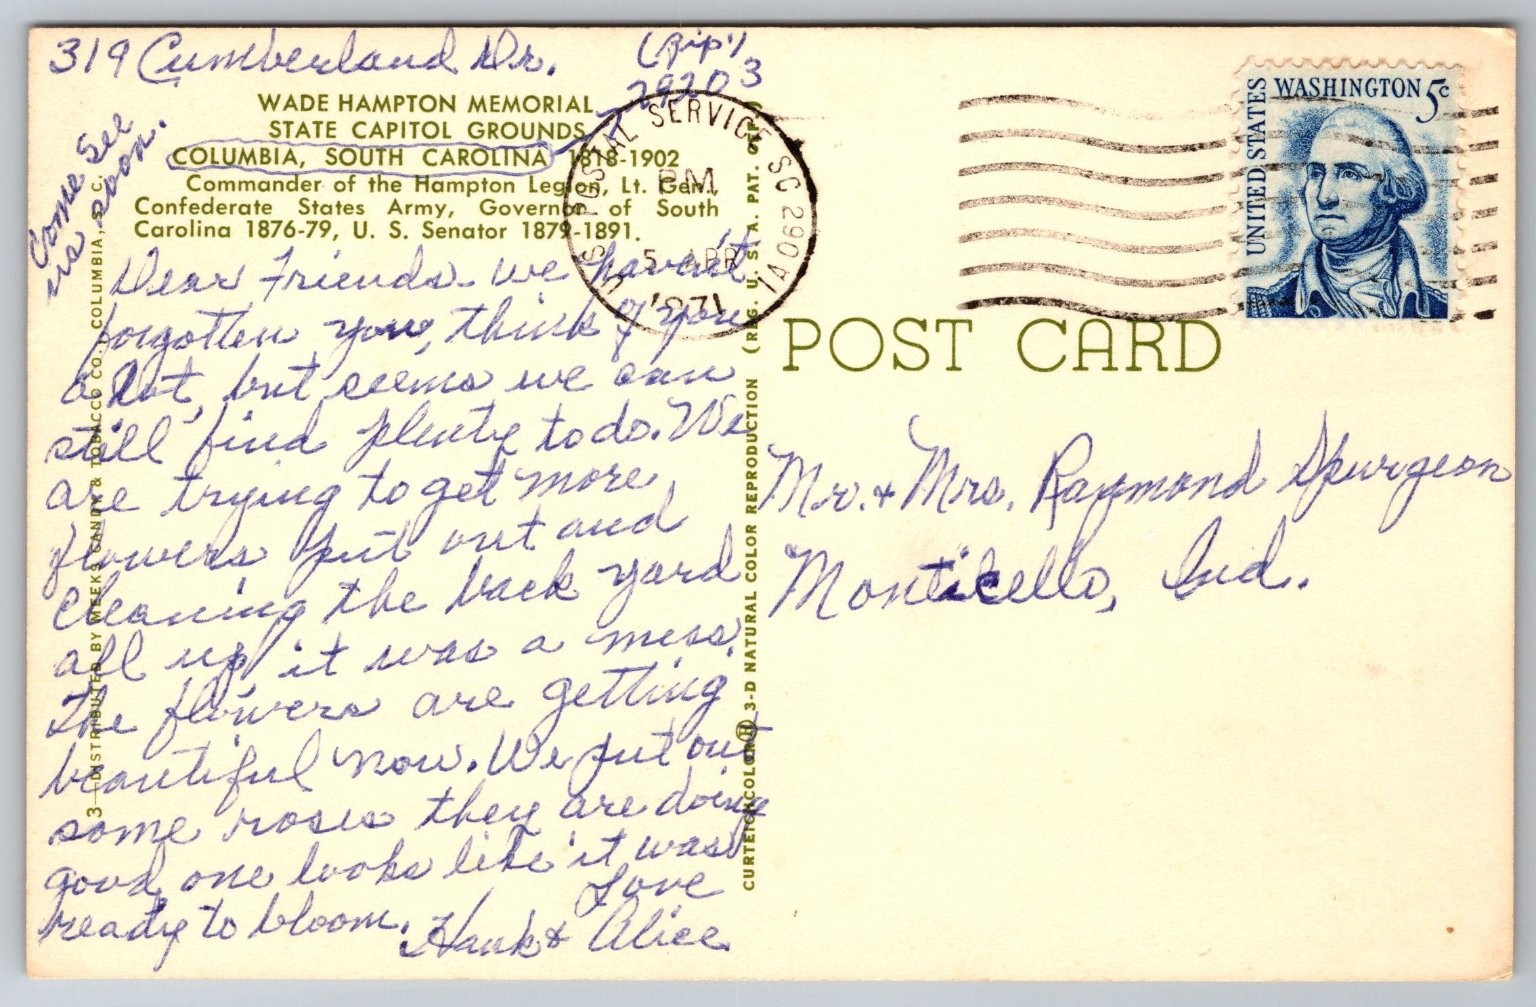 319 Cumberland Dr. (Zip)
29203
WADE HAMPTON MEMORIAL
STATE CAPITOL GROUNDS
COLUMBIA, SOUTH CAROLINA 1818-1902
Commander of the Hampton Legion, Lt. Gen.,
Confederate States Army, Governor of South
Carolina 1876-79, U. S. Senator 1879-1891.
Come See
us soon.
Dear Friends - we haven't
forgotten you, think of you
a lot, but seems we can
still find plenty to do. We
are trying to get more
flowers put out and
cleaning the back yard
all up, it was a mess.
The flowers are getting
beautiful now. We put out
some roses they are doing
good, one looks like it was
ready to bloom.
Love
Hank & Alice
3—DISTRIBUTED BY MEEKS CANDY & TOBACCO CO., COLUMBIA, S. C.
CURTEICHCOLOR® 3-D NATURAL COLOR REPRODUCTION (REG. U. S. A. PAT. OFF.)
US POSTAL SERVICE SC 290
PM
5 APR
1971
UNITED STATES
WASHINGTON 5c
POST CARD
Mr. & Mrs. Raymond Spurgeon
Monticello, Ind.